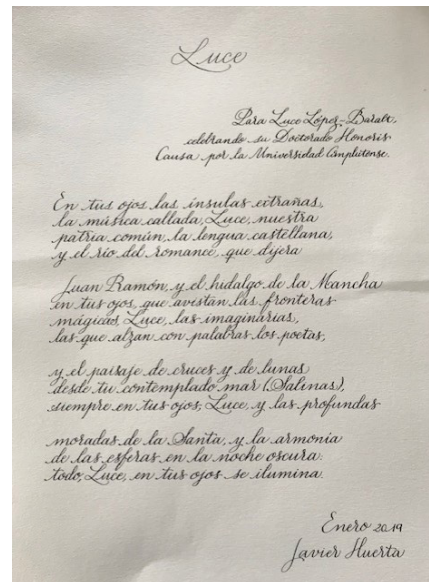 Luce
Para Luce López-Baralt,
celebrando su Doctorado Honoris
Causa por la Universidad Complutense.
En tus ojos las ínsulas extrañas,
la música callada, Luce, nuestra
patria común, la lengua castellana,
y el río del romance, que dijera
Juan Ramón, y el hidalgo de la Mancha
en tus ojos, que avistan las fronteras
mágicas, Luce, las imaginarias,
las que alzan con palabras los poetas;
y el paisaje de cruces y de lunas
desde tu contemplado mar (Salinas),
siempre en tus ojos, Luce, y las profundas
moradas de la Santa, y la armonía
de las esferas en la noche oscura:
todo, Luce, en tus ojos se ilumina.
Enero 2019
Javier Huerta